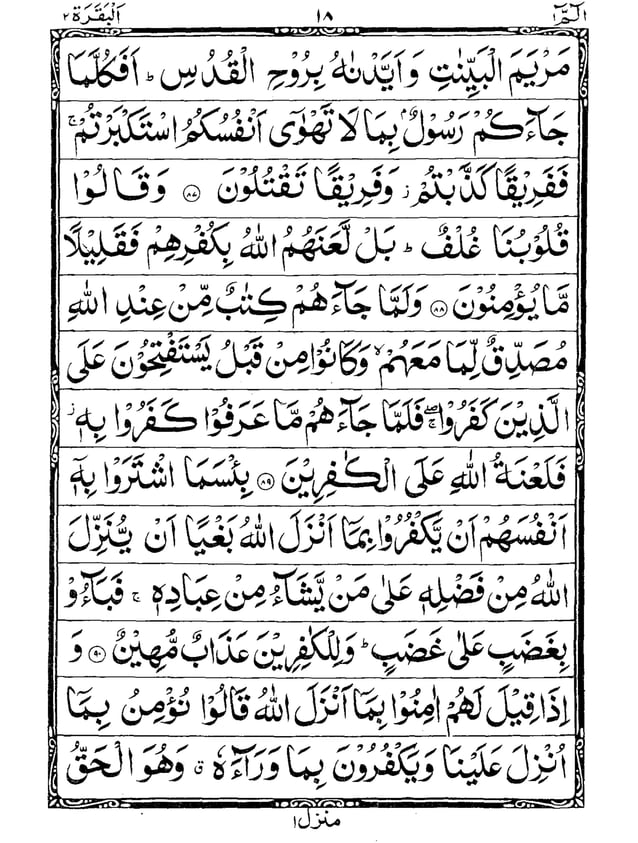 الٓمّٓ ١ ١٨ اَلْبَقَرَة ٢
مَرْيَمَ الْبَيِّنٰتِ وَاَيَّدْنٰهُ بِرُوْحِ الْقُدُسِ ؕ اَفَكُلَّمَا
جَآءَكُمْ رَسُوْلٌۢ بِمَا لَا تَهْوٰٓى اَنْفُسُكُمُ اسْتَكْبَرْتُمْ ۚ
فَفَرِيْقًا كَذَّبْتُمْ ؗ وَفَرِيْقًا تَقْتُلُوْنَ ﴿٨٧﴾ وَقَالُوْا
قُلُوْبُنَا غُلْفٌ ؕ بَلْ لَّعَنَهُمُ اللّٰهُ بِكُفْرِهِمْ فَقَلِيْلًا
مَّا يُؤْمِنُوْنَ ﴿٨٨﴾ وَلَمَّا جَآءَهُمْ كِتٰبٌ مِّنْ عِنْدِ اللّٰهِ
مُصَدِّقٌ لِّمَا مَعَهُمْ ۙ وَكَانُوْا مِنْ قَبْلُ يَسْتَفْتِحُوْنَ عَلَى
الَّذِيْنَ كَفَرُوْا ۖۚ فَلَمَّا جَآءَهُمْ مَّا عَرَفُوْا كَفَرُوْا بِهٖ ؗ
فَلَعْنَةُ اللّٰهِ عَلَى الْكٰفِرِيْنَ ﴿٨٩﴾ بِئْسَمَا اشْتَرَوْا بِهٖٓ
اَنْفُسَهُمْ اَنْ يَّكْفُرُوْا بِمَآ اَنْزَلَ اللّٰهُ بَغْيًا اَنْ يُّنَزِّلَ
اللّٰهُ مِنْ فَضْلِهٖ عَلٰى مَنْ يَّشَآءُ مِنْ عِبَادِهٖ ۚ فَبَآءُوْ
بِغَضَبٍ عَلٰى غَضَبٍ ؕ وَلِلْكٰفِرِيْنَ عَذَابٌ مُّهِيْنٌ ﴿٩٠﴾ وَ
اِذَا قِيْلَ لَهُمْ اٰمِنُوْا بِمَآ اَنْزَلَ اللّٰهُ قَالُوْا نُؤْمِنُ بِمَآ
اُنْزِلَ عَلَيْنَا وَيَكْفُرُوْنَ بِمَا وَرَآءَهٗ ۗ وَهُوَ الْحَقُّ
منزل ١